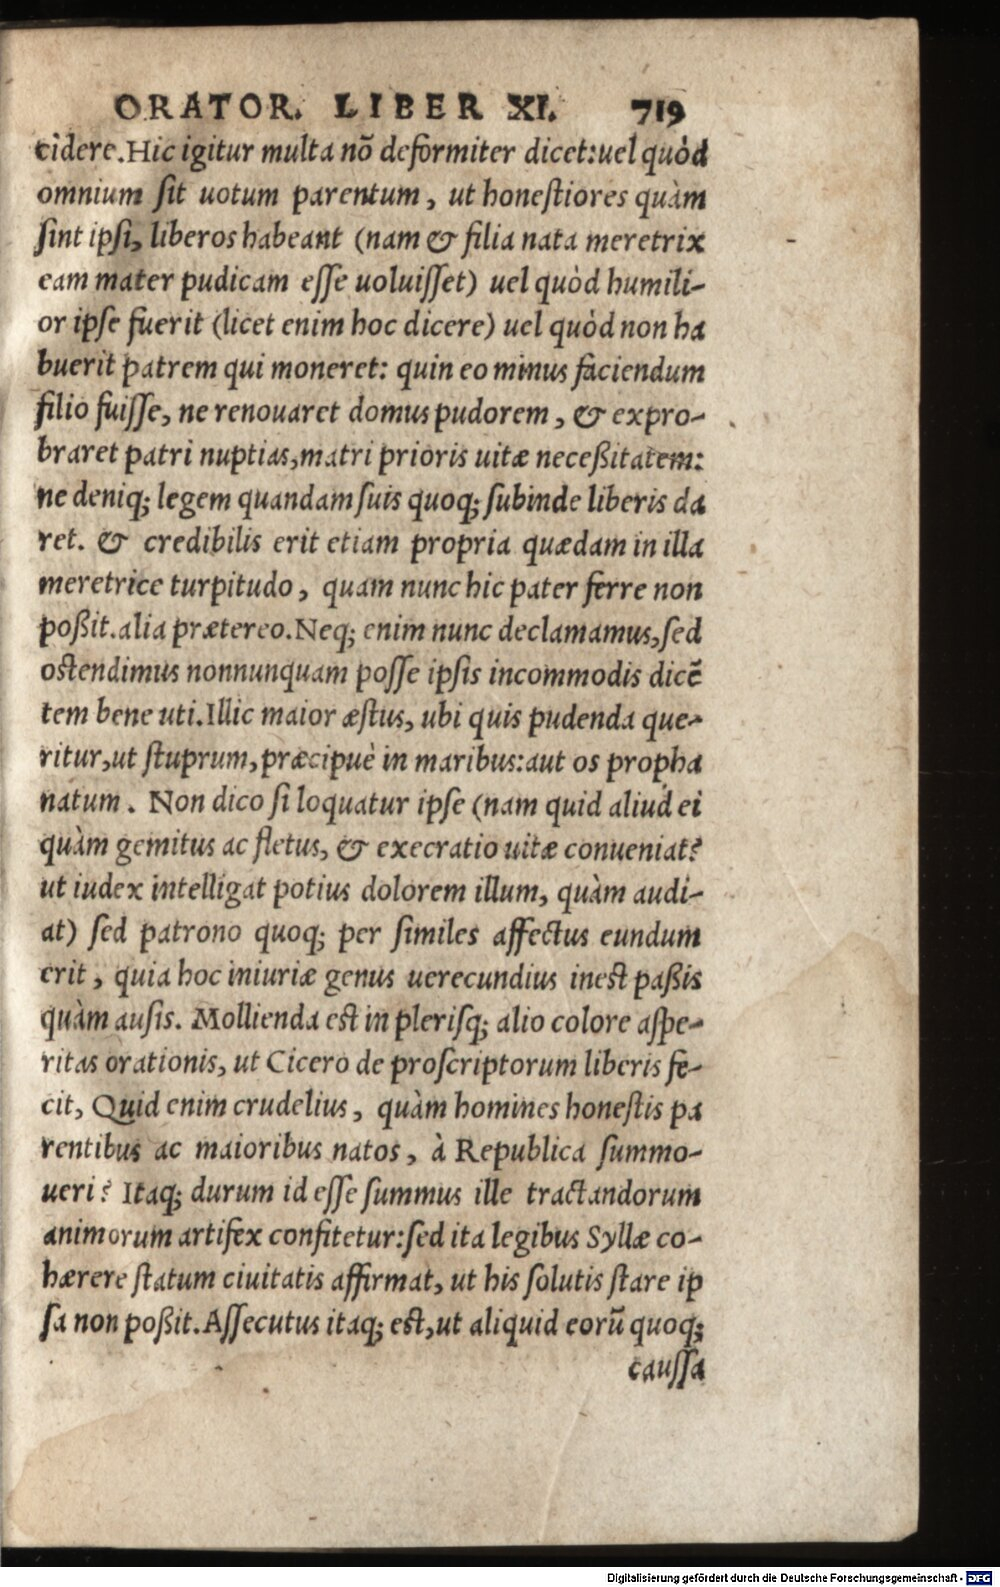 ORATOR. LIBER XI. 719
cidere. Hic igitur multa nō deformiter dicet: uel quòd
omnium sit uotum parentum, ut honestiores quàm
sint ipsi, liberos habeant (nam & filia nata meretrix
eam mater pudicam esse uoluisset) uel quòd humili-
or ipse fuerit (licet enim hoc dicere) uel quòd non ha
buerit patrem qui moneret: quin eo minus faciendum
filio fuisse, ne renouaret domus pudorem, & expro-
braret patri nuptias, matri prioris uitæ neceßitatem:
ne deniq; legem quandam suis quoq; subinde liberis da
ret. & credibilis erit etiam propria quædam in illa
meretrice turpitudo, quam nunc hic pater ferre non
poßit. alia prætereo. Neq; enim nunc declamamus, sed
ostendimus nonnunquam posse ipsis incommodis dicē
tem bene uti. Illic maior æstus, ubi quis pudenda que-
ritur, ut stuprum, præcipuè in maribus: aut os propha
natum. Non dico si loquatur ipse (nam quid aliud ei
quàm gemitus ac fletus, & execratio uitæ conueniat?
ut iudex intelligat potius dolorem illum, quàm audi-
at) sed patrono quoq; per similes affectus eundum
erit, quia hoc iniuriæ genus uerecundius inest paßis
quàm ausis. Mollienda est in plerisq; alio colore aspe-
ritas orationis, ut Cicero de proscriptorum liberis fe-
cit, Quid enim crudelius, quàm homines honestis pa
rentibus ac maioribus natos, à Republica summo-
ueri? Itaq; durum id esse summus ille tractandorum
animorum artifex confitetur: sed ita legibus Syllæ co-
hærere statum ciuitatis affirmat, ut his solutis stare ip
sa non poßit. Assecutus itaq; est, ut aliquid eorū quoq;
caussa
Digitalisierung gefördert durch die Deutsche Forschungsgemeinschaft - DFG